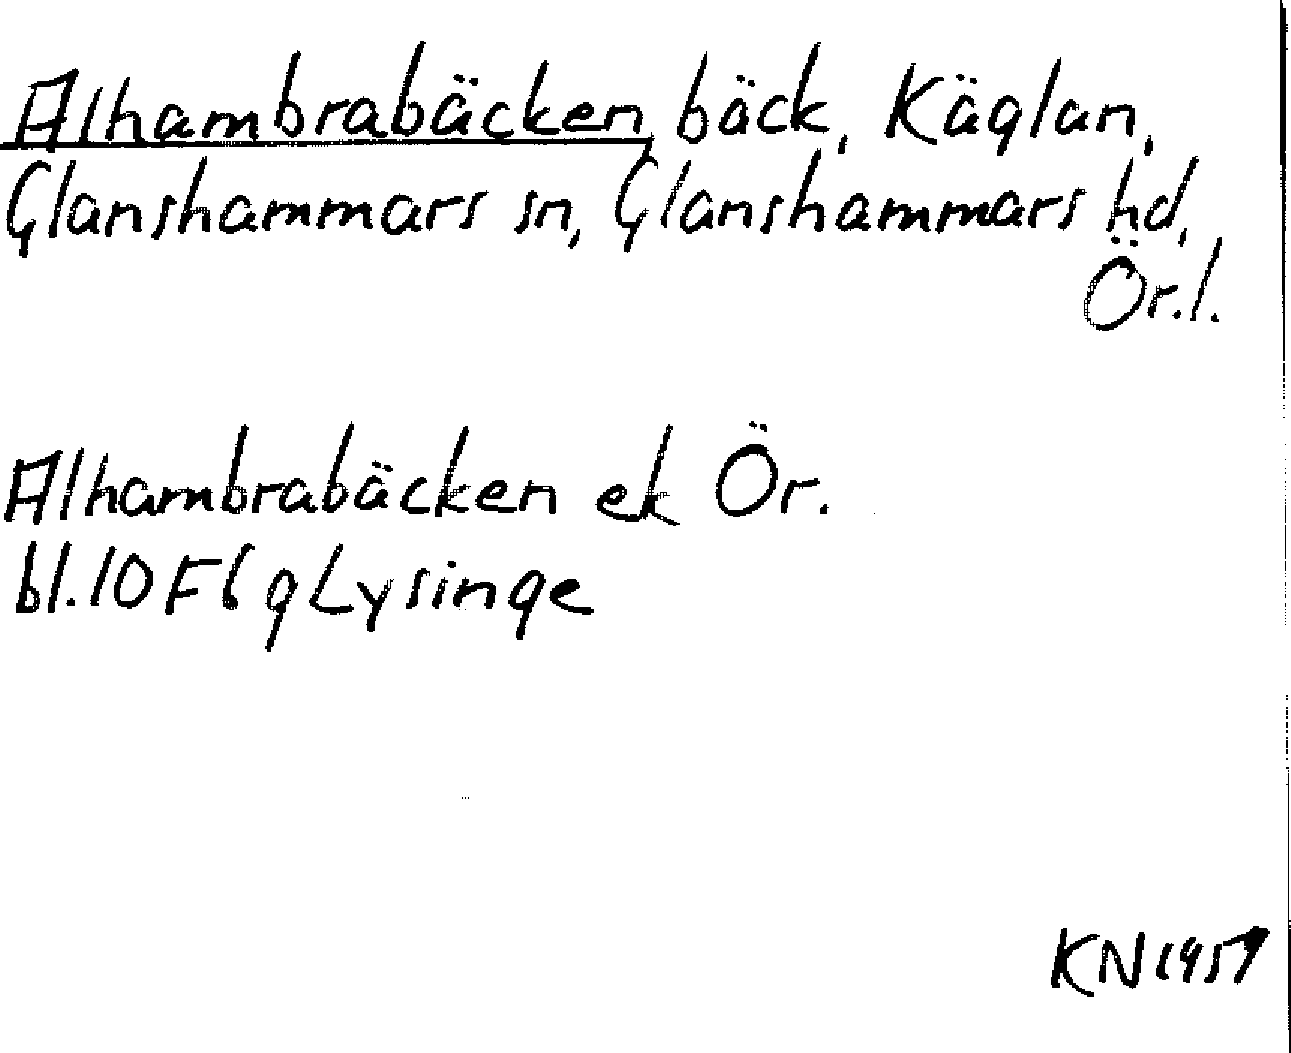 Alhambrabäcken, bäck, Käglan,
Glanshammars sn, Glanshammars hd,
Ör.l.
Alhambrabäcken ek Ör.
bl. 10F6g Lysinge
KN